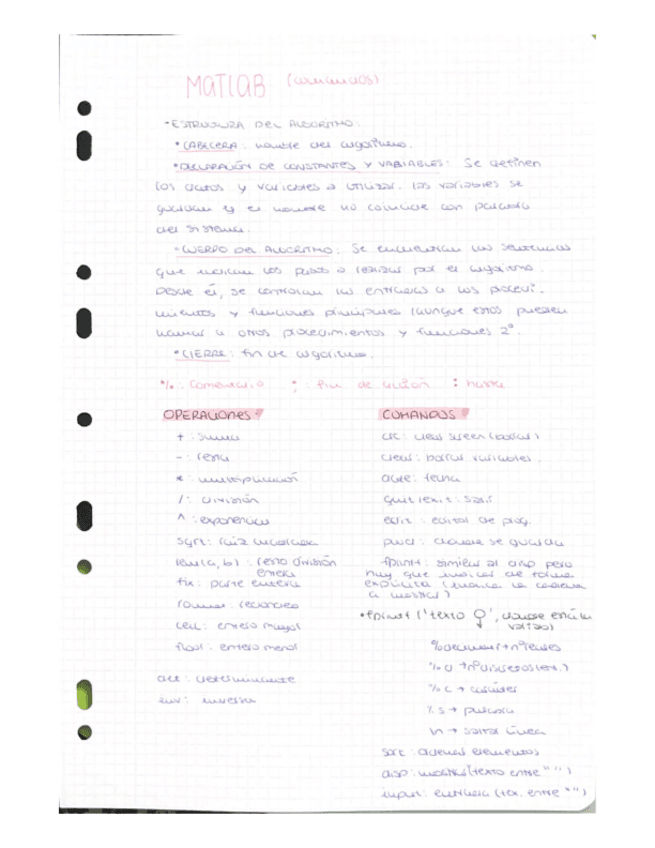 MATLAB (comandos)
• ESTRUCTURA DEL ALGORITMO:
• CABECERA: nombre del algoritmo.
• DECLARACIÓN DE CONSTANTES Y VARIABLES: Se definen
los datos y variables a utilizar. las variables se
guardan y el nombre no coincide con palabra
del sistema.
• CUERPO DEL ALGORITMO: Se encuentran las sentencias
que indican los pasos a realizar por el algoritmo.
Desde él, se controlan las entradas a los procedi-
mientos y funciones principales (aunque estos pueden
llamar a otros procedimientos y funciones 2º.
• CIERRE: fin de algoritmo.
% : Comentario ; : fin de acción : hasta
OPERACIONES
+ : suma
- : resta
* : multiplicación
/ : división
^ : exponencial
sqrt: raíz cuadrada
rem(a, b) : resto división
entera
fix: parte entera
round: redondeo
ceil: entero mayor
floor: entero menor
det: determinante
inv: inversa
COMANDOS
clc: clear screen (borrar)
clear: borrar variables.
date: fecha
quit/exit: salir
edit: editor de prog.
pwd: donde se guarda
fprintf: similar al disp pero
hay que indicar de forma
explícita (indica la cadena
a mostrar)
• fprintf ('texto ', donde está la
variable)
% c → carácter
% s → palabra
\n → saltar línea
sort: ordenar elementos
disp: mostrar (texto entre " ")
input: entrada (tex. entre " ")